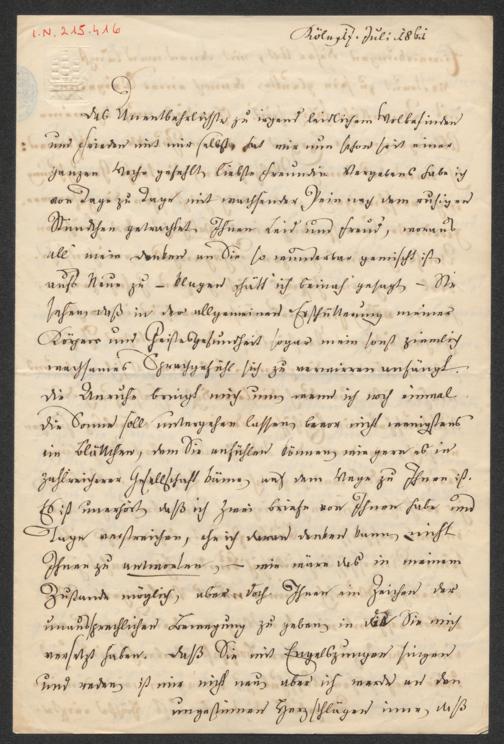 I.N. 215.416
Köln, 17. Juli 1861
Das Unentbehrlichste zu irgend leidlichem Wolbefinden
und Frieden mit mir selbst, hat mir nun schon seit einer
ganzen Woche gefehlt, liebste Freundin. Vergebens habe ich
von Tage zu Tage mit wachsender Pein nach dem ruhigen
Stündchen getrachtet, Ihnen Leid und Freud, woraus
all' mein Denken an Sie so wunderbar gemischt ist,
aufs Neue zu – klagen hätt' ich beinah gesagt – Sie
sehen, daß in der allgemeinen Erschütterung meiner
Körper und Geistesgesundheit sogar mein sonst ziemlich
wachsames Sprachgefühl sich zu verwirren anfängt.
Die Unruhe bringt mich um, wenn ich noch einmal
die Sonne soll untergehen lassen, bevor nicht wenigstens
ein Blättchen, dem Sie anfühlen können, wie gern es in
zahlreicherer Gesellschaft käme, auf dem Wege zu Ihnen ist.
Es ist unerhört, daß ich zwei Briefe von Ihnen habe und
Tage verstreichen, ehe ich daran denken kann, nicht
Ihnen zu antworten, – wie wäre das in meinem
Zustande möglich, aber doch Ihnen ein Zeichen der
unaussprechlichen Bewegung zu geben, in die Sie mich
versetzt haben. Daß Sie mit Engelszungen singen
und reden, ist mir nicht neu, aber ich werde an den
ungestümen Herzschlägen inne, daß